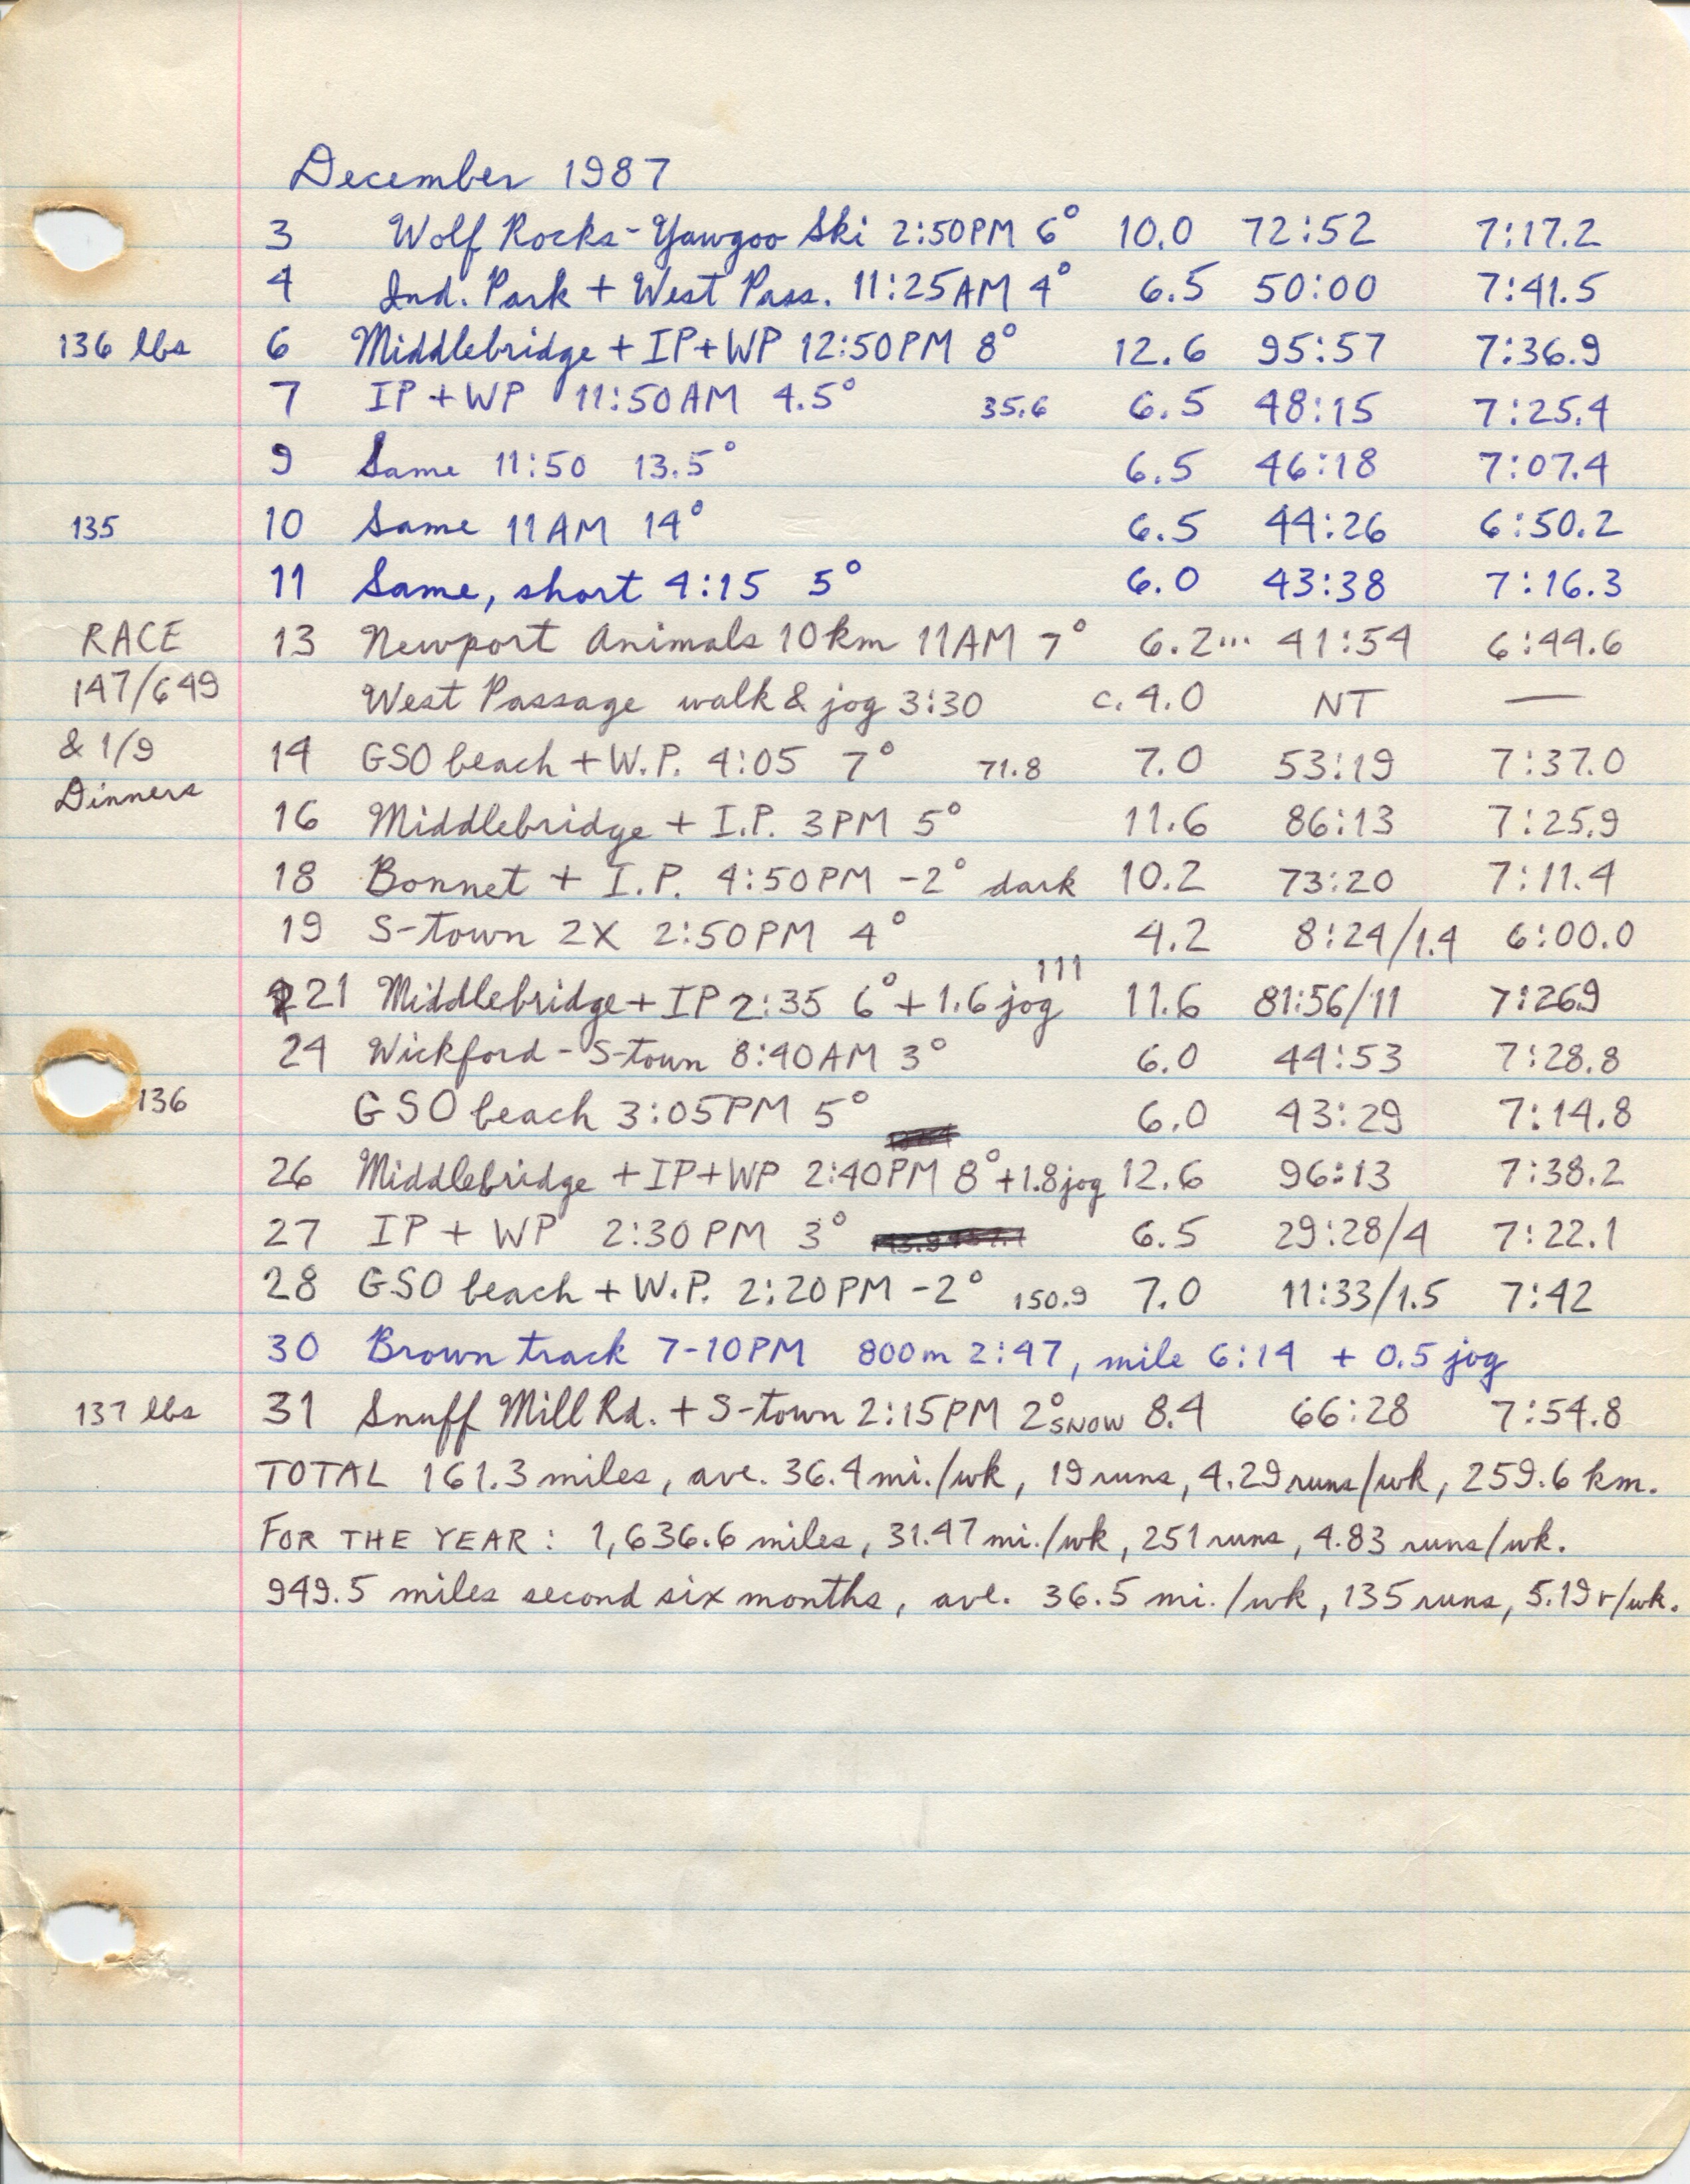 December 1987
3 Wolf Rocks-Yawgoo Ski 2:50PM 6° 10.0 72:52 7:17.2
4 Ind. Park + West Pass. 11:25AM 4° 6.5 50:00 7:41.5
136 lbs 6 Middlebridge + IP+WP 12:50PM 8° 12.6 95:57 7:36.9
7 IP + WP 11:50AM 4.5° 35.6 6.5 48:15 7:25.4
9 Same 11:50 13.5° 6.5 46:18 7:07.4
135 10 Same 11AM 14° 6.5 44:26 6:50.2
11 Same, short 4:15 5° 6.0 43:38 7:16.3
RACE 13 Newport Animals 10km 11AM 7° 6.2... 41:54 6:44.6
147/649 West Passage walk & jog 3:30 c. 4.0 NT —
& 1/9 14 GSO beach + W.P. 4:05 7° 71.8 7.0 53:19 7:37.0
Dinners
16 Middlebridge + I.P. 3PM 5° 11.6 86:13 7:25.9
18 Bonnet + I.P. 4:50PM -2° dark 10.2 73:20 7:11.4
19 S-town 2X 2:50PM 4° 4.2 8:24/1.4 6:00.0
111
21 Middlebridge + IP 2:35 6° + 1.6 jog 11.6 81:56/11 7:26.9
24 Wickford - S-town 8:40AM 3° 6.0 44:53 7:28.8
136 GSO beach 3:05PM 5° 6.0 43:29 7:14.8
26 Middlebridge + IP+WP 2:40PM 8° +1.8 jog 12.6 96:13 7:38.2
27 IP + WP 2:30PM 3° 6.5 29:28/4 7:22.1
28 GSO beach + W.P. 2:20PM -2° 150.9 7.0 11:33/1.5 7:42
30 Brown track 7-10PM 800m 2:47, mile 6:14 + 0.5 jog
137 lbs 31 Snuff Mill Rd. + S-town 2:15PM 2° SNOW 8.4 66:28 7:54.8
TOTAL 161.3 miles, ave. 36.4 mi./wk, 19 runs, 4.29 runs/wk, 259.6 km.
FOR THE YEAR: 1,636.6 miles, 31.47 mi./wk, 251 runs, 4.83 runs/wk.
949.5 miles second six months, ave. 36.5 mi./wk, 135 runs, 5.19 r/wk.